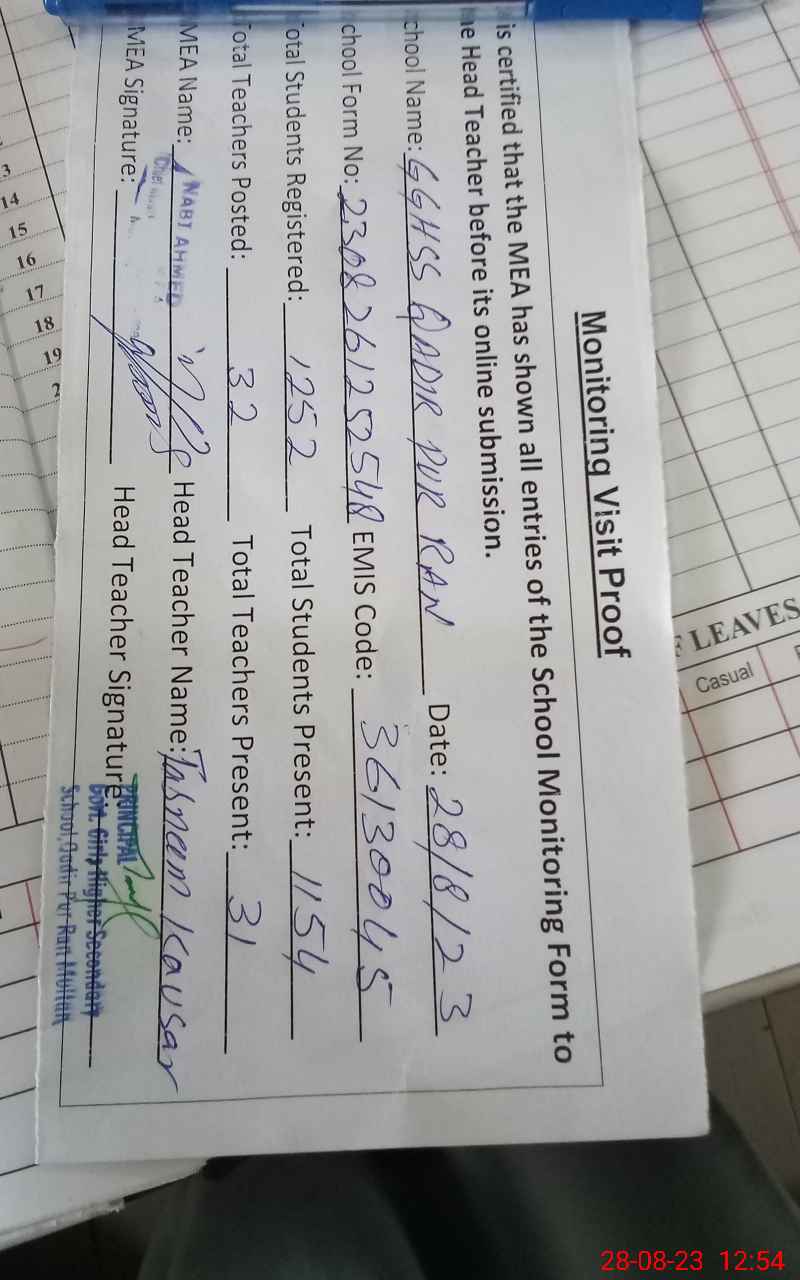 Monitoring Visit Proof
is certified that the MEA has shown all entries of the School Monitoring Form to
he Head Teacher before its online submission.
chool Name: GGHSS QADIR PUR RAN Date: 28/8/23
chool Form No: 2308261252548 EMIS Code: 36130045
otal Students Registered: 1252 Total Students Present: 1154
Total Teachers Posted: 32 Total Teachers Present: 31
MEA Name: NABI AHMED Head Teacher Name: Tasneem Kausar
MEA Signature: Head Teacher Signature
PRINCIPAL
Govt. Girls Higher Secondary
School, Qadir Pur Ran Multan
LEAVES
Casual
3
14
15
16
17
18
19
2
28-08-23 12:54